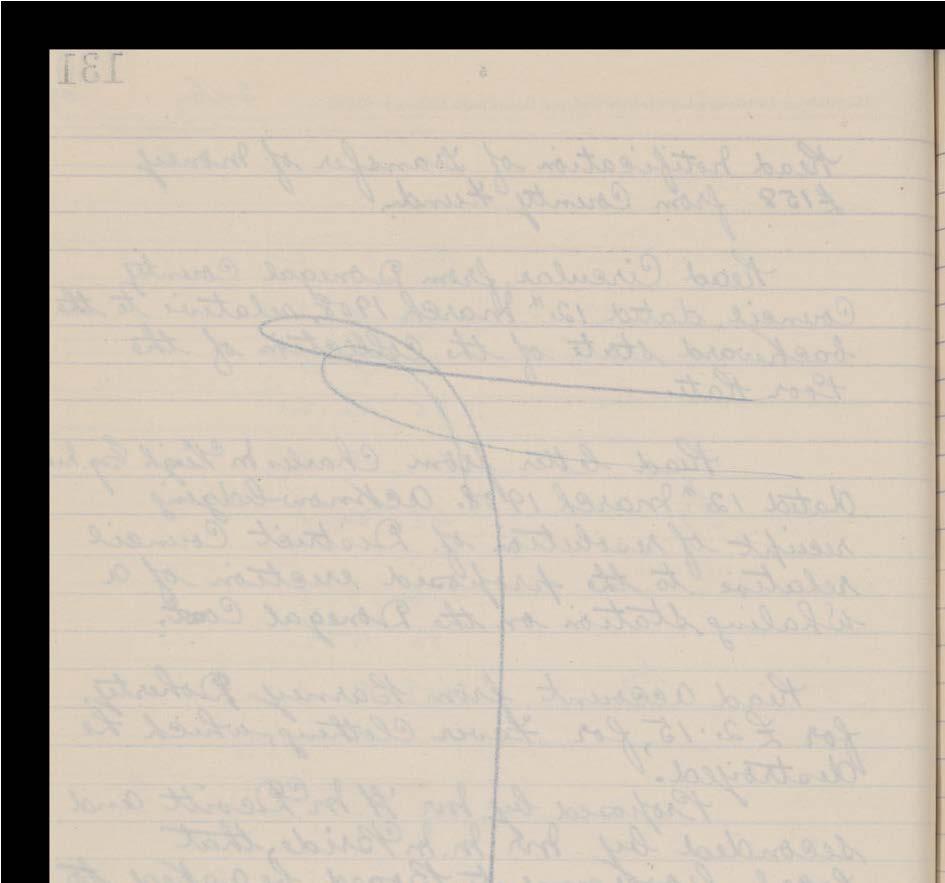 131
Read notification of transfer of money
£158 from County Fund.
Read Circular from Donegal County
Council dated 12th March 1908, relative to the
backward state of the Collection of the
Poor Rate.
Read letter from Charles
dated 12th March 1908. acknowledging
receipt of resolution of District Council
relative to the proposed erection of a
Whaling Station on the Donegal Coast.
Read account from Barney Doherty,
for £2.15, for Fever Clothing, which he
destroyed.
Proposed by Mr and
seconded by Mr that